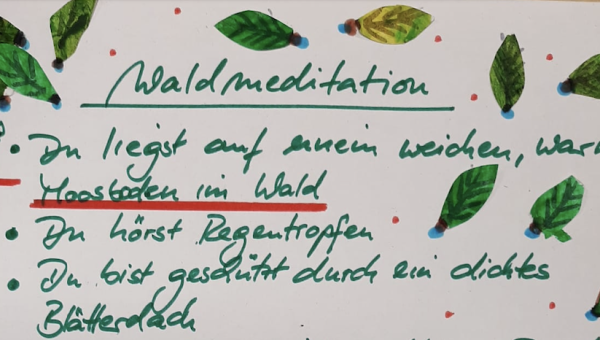 Waldmeditation
• Du liegst auf einem weichen, war
Moosboden im Wald
• Du hörst Regentropfen
• Du bist geschützt durch ein dichtes
Blätterdach